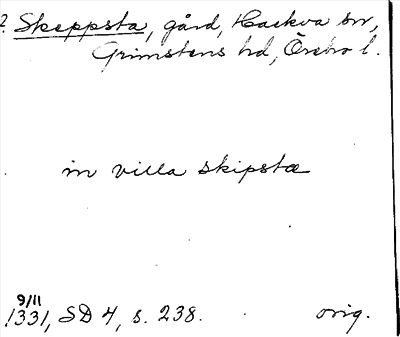 ? Skeppsta, gård, Hackva sn,
Grimstens hd, Örebro l.
in villa skipstæ
9/11
1331, SD 4, s. 238. orig.